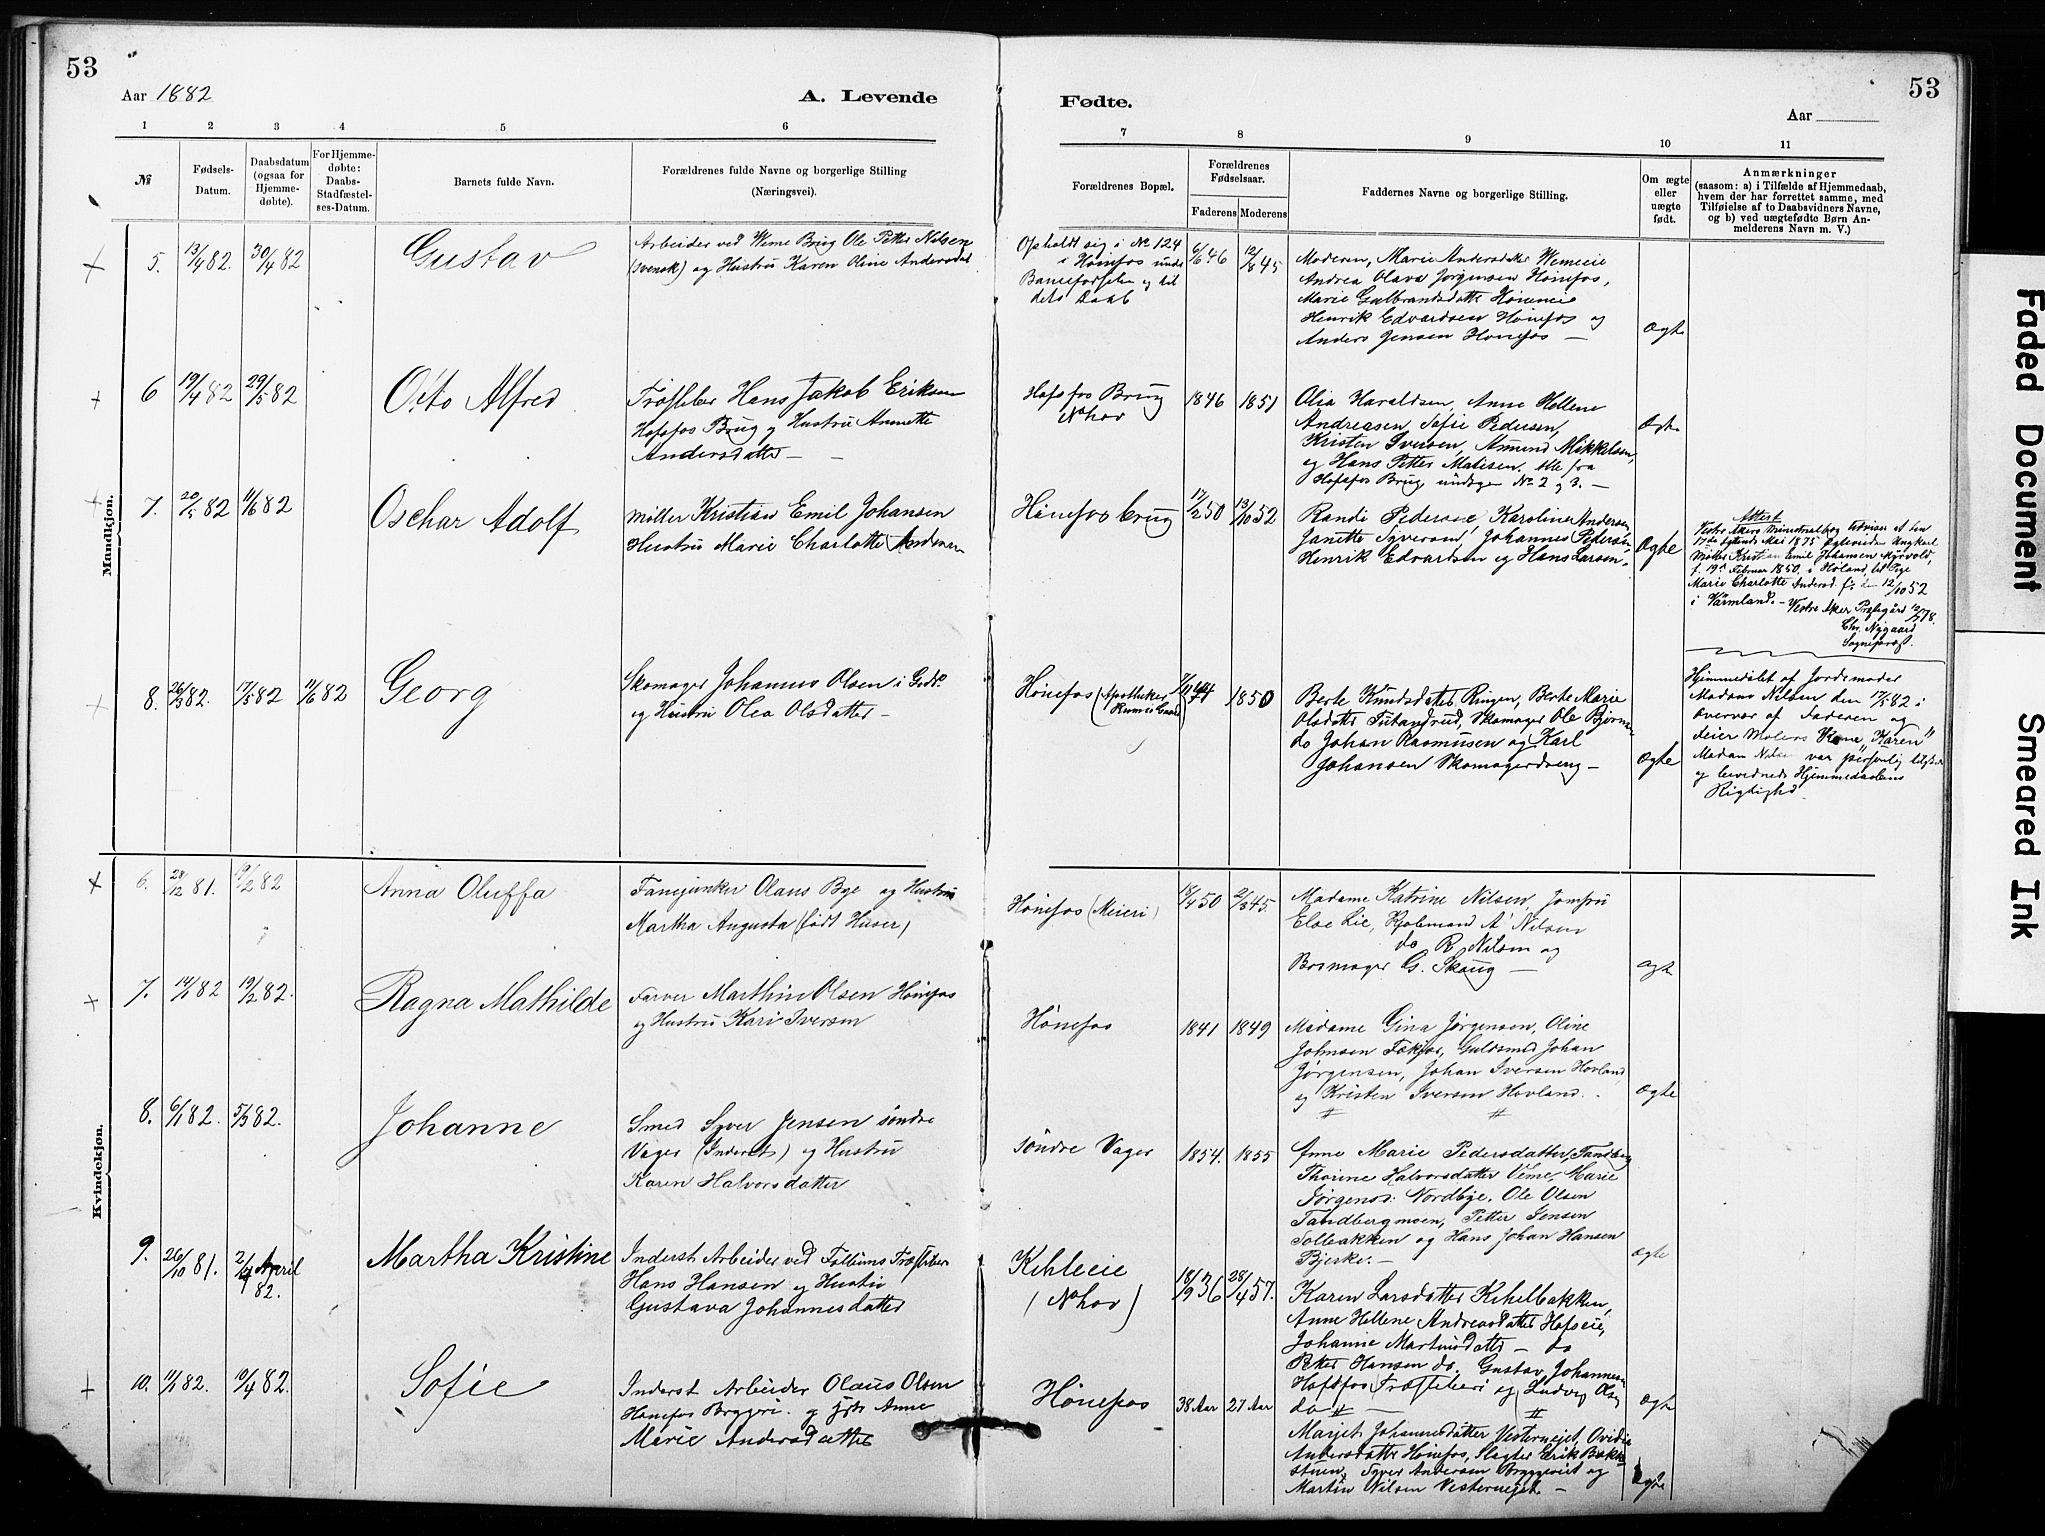 53
Aar 1882
A. Levende
Fødte.
53
Aar
1 2 3 4 5 6 7 8 9 10 11
№
Fødsels-
Datum.
Daabsdatum
(ogsaa for
Hjemme-
døbte).
For Hjemme-
døbte:
Daabs-
Stadfæstel-
ses-Datum.
Barnets fulde Navn.
Forældrenes fulde Navne og borgerlige Stilling
(Næringsvei).
Forældrenes Bopæl.
Forældrenes
Fødselsaar.
Faderens Moderens
Faddernes Navne og borgerlige Stilling.
Om ægte
eller
uægte
født.
Anmærkninger
(saasom: a) i Tilfælde af Hjemmedaab,
hvem der har forrettet samme, med
Tilføielse af to Daabsvidners Navne,
og b) ved uægtefødte Børn An-
melderens Navn m. V.)
Mandkjøn.
5. 13/4 82. 30/4 82
Gustav
Arbeider ved Weme Brug Ole Petter Nilsen
(Svensk) og Hustru Karen Oline Andersdat
Opholdt sig i No 124
i Hønefos under
Barnefødselen og til
dets Daab
6/6 46 12/8 45
Moderen, Marie Andersdatter Wemeeie
Andrea Olava Jørgensen Hønefos,
Marie Gulbrandsdatter Høneneie
Henrik Edvardsen Hønefos og
Anders Jensen Hønefos —
Ægte
6 19/4 82 29/5 82
Otto Alfred
Træsliber Hans Jakob Eriksen
Hofsfos Brug og Hustru Annette
Andersdatter —
Hofsfos Brug
Nhov
1846 1851
Olia Haraldsen, Anne Hellene
Andreasen, Sofie Pedersen,
Kristen Iversen, Amund Mikkelsen,
og Hans Petter Matisen. Alle fra
Hofsfos Brug undtagen No 2 og 3. —
Ægte
7. 20/5 82 11/6 82
Oschar Adolf
Møller Kristian Emil Johansen
Hustru Marie Charlotte Andersen
Hønefos brug
19/2 50 12/10 52
Randi Pedersen, Karoline Andersen
Janette Syversen, Johannes Pedersen,
Henrik Edvardsen og Hans Larsen.
Ægte
Attest
Vestre Akers Ministerialbog udviser at den
17de Mai 1875 Ægteviedes Ungkarl
Møller Kristian Emil Johansen Myrvold,
f. 19de Februar 1850 i Høland, til Pige
Marie Charlotte Andersd. f. den 12/10 52
i Värmland. — Vestre Aker Præstegård
Chr. Nygaard
Sognepræst.
8. 26/3 82. 17/5 82 11/6 82
Georg
Skomager Johannes Olsen i Gude
og Hustru Olea Olsdatter —
Hønefos (Apotheker
1850
Berte Knudsdatter Ringen, Berte Marie
Olsdatter Tutangrud, Skomager Ole Bjørnsen
do Johan Rasmussen og Karl
Johansen Skomagerdreng —
Ægte
Hjemmedøbt af Jordemoder
Madame Nilsen den 17/5 82 i
Overvær af Faderen og
Feier Mølers Kone "Karen"
Madam Nilsen var personlig tilstede
og bevidnede Hjemmedaabens
Rigtighed
Kvindekjøn.
6. 28/12 81. 19/2 82
Anna Oluffa
Fanejunker Olaus Bye og Hustru
Martha Augusta (født Huser)
Hønefos (Meieri)
2/3 45.
Madame Katrine Nilsen, Jomfru
Else Lie, Kjøbmand A. Nilsen
do R. Nilsen og
Børsmager G. Skaug —
Ægte
7. 14/1 82 19/2 82.
Ragna Mathilde
Farver Marthin Olsen Hønefos
og Hustru Kari Iversen
Hønefos
1841 1849
Madame Gina Jørgensen, Oline
Johnsen Fokfos, Guldsmed Johan
Jørgensen, Johan Iversen Hovland,
og Kristen Iversen Hovland.
Ægte
8. 6/1 82. 5/3 82.
Johanne
Smed Syver Jensen søndre
Vager (Inderst) og Hustru
Karen Halvorsdatter
Søndre Vager
1854. 1855
Anne Marie Pedersdatter, Tandberg
Thorine Halvorsdatter Veme, Marie
Jørgensd. Nordbye, Ole Olsen
Tandbergmoen, Petter Jensen
Solbakken og Hans Johan Hansen
Bjerke. —
Ægte
9. 26/10 81. 2/4 April
82.
Martha Kristine
Inderst Arbeider ved Follums Træsliberi
Hans Hansen og Hustru
Gustava Johannesdatter
Kihleeie
(Nhov)
18/9 36 28/4 57.
Karen Larsdatter Kihelbakken,
Anne Hellene Andreasdatter Hofseie,
Johanne Martinsdatter — do
Peter Hansen do, Gustav Johannesen
Hofsfos Træsliberi og Ludvig Olsen
do —
Ægte
10. 11/1 82. 10/4 82.
Sofie
Inderst Arbeider Olaus Olsen
Hønefos Bryggeri og Hst Anne
Marie Andersdatter
Hønefos
38 Aar 27 Aar
Marjet Johannesdatter Vesternejet, Ovidia
Andersdatter Hønefos, Slagter Erik Bakke-
stuen, Syver Andersen Bryggeriet og
Martin Nilsen Vesternejet. —
Ægte
Faded Document
Smeared Ink